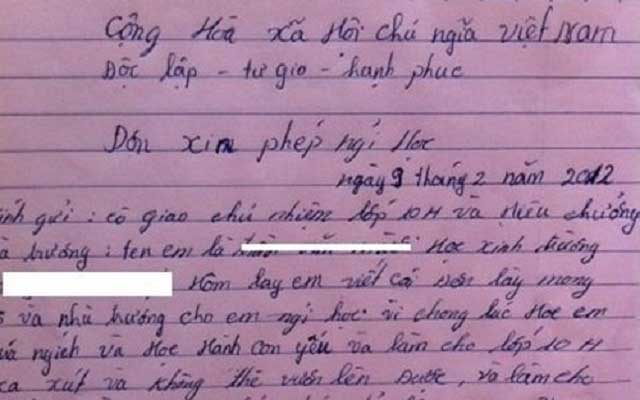 Cộng Hoà xã Hôi chủ ngĩa việt Nam
Dộc lập - tư gio - hạnh phuc
Dón xin phép ngỉ Học
ngày 9 tháng 2 năm 2012
inh gửi : cô giao chủ nhiệm lớp 10 H và Hiêu chưởng
à trường : ten em là Học xinh trường
Hôm lay em viết cái Dơn lày mong
và nhà trường cho em ngỉ học vì chong lúc Hoc em
uá ngich và Học Hành con yếu và làm cho lớp 10 H
xa xút và không thể vươn lên Dược, và làm cho